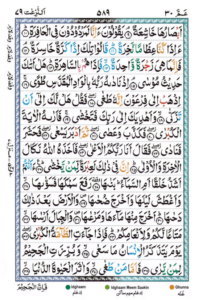 النّٰزِعٰت ٧٩
٥٨٩
عَمَّ ٣٠
اَبْصَارُهَا خَاشِعَةٌ ۞ يَقُوْلُوْنَ ءَاِنَّا لَمَرْدُوْدُوْنَ فِي الْحَافِرَةِ ۞
ءَاِذَا كُنَّا عِظَامًا نَّخِرَةً ۞ قَالُوْا تِلْكَ اِذًا كَرَّةٌ خَاسِرَةٌ ۞
فَاِنَّمَا هِيَ زَجْرَةٌ وَّاحِدَةٌ ۞ فَاِذَا هُمْ بِالسَّاهِرَةِ ۞ هَلْ اَتٰىكَ
حَدِيْثُ مُوْسٰى ۞ اِذْ نَادٰىهُ رَبُّهٗ بِالْوَادِ الْمُقَدَّسِ طُوًى ۞
اِذْهَبْ اِلٰى فِرْعَوْنَ اِنَّهٗ طَغٰى ۞ فَقُلْ هَلْ لَّكَ اِلٰٓى اَنْ
تَزَكّٰى ۞ وَاَهْدِيَكَ اِلٰى رَبِّكَ فَتَخْشٰى ۞ فَاَرٰىهُ الْاٰيَةَ
الْكُبْرٰى ۞ فَكَذَّبَ وَعَصٰى ۞ ثُمَّ اَدْبَرَ يَسْعٰى ۞ فَحَشَرَ
فَنَادٰى ۞ فَقَالَ اَنَا رَبُّكُمُ الْاَعْلٰى ۞ فَاَخَذَهُ اللّٰهُ نَكَالَ
الْاٰخِرَةِ وَالْاُوْلٰى ۞ اِنَّ فِيْ ذٰلِكَ لَعِبْرَةً لِّمَنْ يَّخْشٰى ۞ ءَاَنْتُمْ
اَشَدُّ خَلْقًا اَمِ السَّمَآءُ بَنٰىهَا ۞ رَفَعَ سَمْكَهَا فَسَوّٰىهَا ۞
وَاَغْطَشَ لَيْلَهَا وَاَخْرَجَ ضُحٰىهَا ۞ وَالْاَرْضَ بَعْدَ ذٰلِكَ
دَحٰىهَا ۞ اَخْرَجَ مِنْهَا مَآءَهَا وَمَرْعٰىهَا ۞ وَالْجِبَالَ اَرْسٰىهَا ۞
مَتَاعًا لَّكُمْ وَلِاَنْعَامِكُمْ ۞ فَاِذَا جَآءَتِ الطَّآمَّةُ الْكُبْرٰى ۞
يَوْمَ يَتَذَكَّرُ الْاِنْسَانُ مَا سَعٰى ۞ وَبُرِّزَتِ الْجَحِيْمُ
لِمَنْ يَّرٰى ۞ فَاَمَّا مَنْ طَغٰى ۞ وَاٰثَرَ الْحَيٰوةَ الدُّنْيَا ۞
فَاِنَّ الْجَحِيْمَ